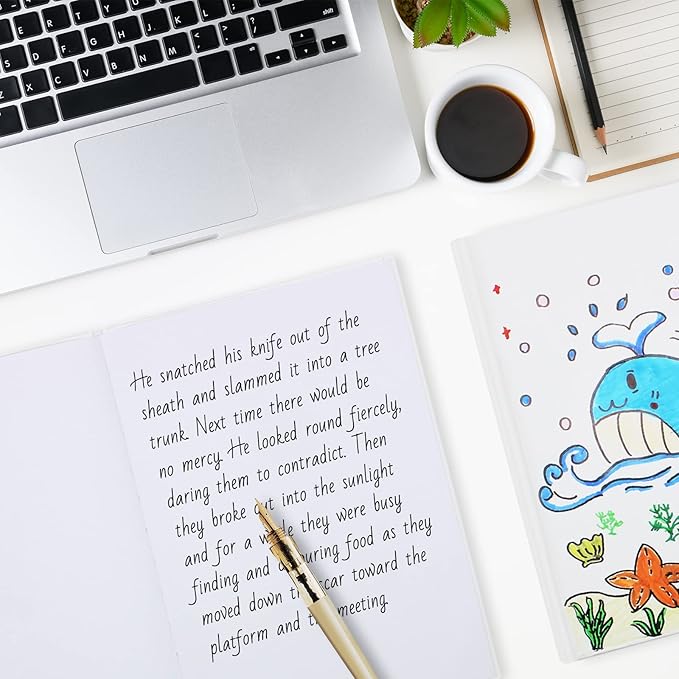 He snatched his knife out of the
sheath and slammed it into a tree
trunk. Next time there would be
no mercy. He looked round fiercely,
daring them to contradict. Then
they broke out into the sunlight
and for a while they were busy
finding and devouring food as they
moved down the scar toward the
platform and the meeting.